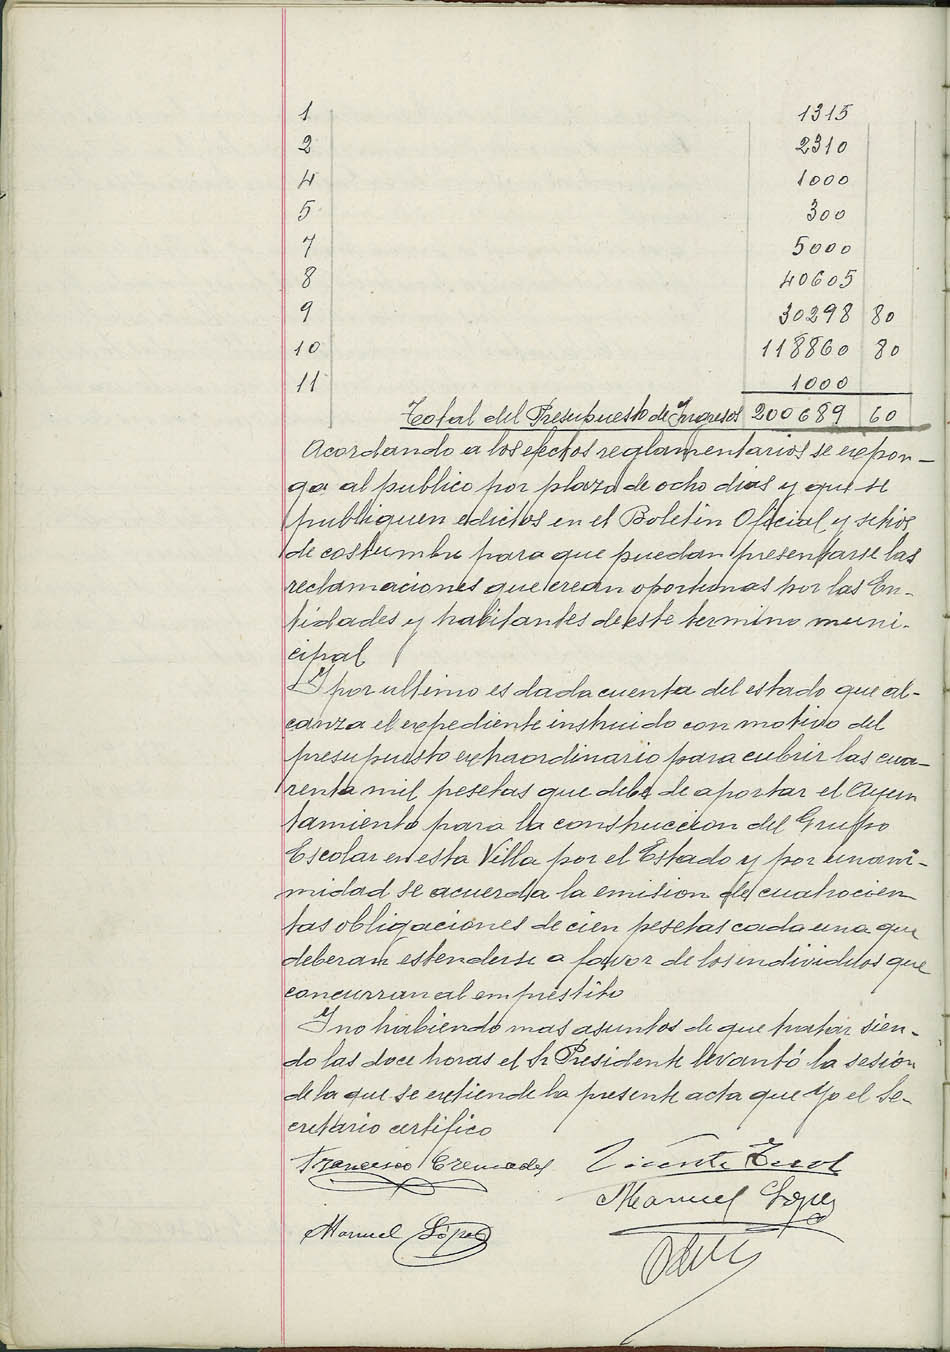 1 1315
2 2310
4 1000
5 300
7 5000
8 40605
9 30298 80
10 118860 80
11 1000
Total del Presupuesto de Ingresos 200689 60
Acordando a los efectos reglamentarios se expon-
ga al publico por plazo de ocho dias y que se
publiquen edictos en el Boletin Oficial y sitios
de costumbre para que puedan presentarse las
reclamaciones que crean oportunas por las En-
tidades y habitantes de este termino muni-
cipal
Y por ultimo es dada cuenta del estado que al-
canza el expediente instruido con motivo del
presupuesto extraordinario para cubrir las cua-
renta mil pesetas que debe de aportar el Ayun
tamiento para la construccion del Grupo
Escolar en esta Villa por el Estado y por unani-
midad se acuerda la emision de cuatrocien
tas obligaciones de cien pesetas cada una que
deberan estenderse a favor de los individuos que
concurran al emprestito
Y no habiendo mas asuntos de que tratar sien-
do las doce horas el Sr Presidente levantó la sesion
de la que se extiende la presente acta que yo el Se-
cretario certifico
Francisco Cremades Vicente
Manuel López
Manuel López